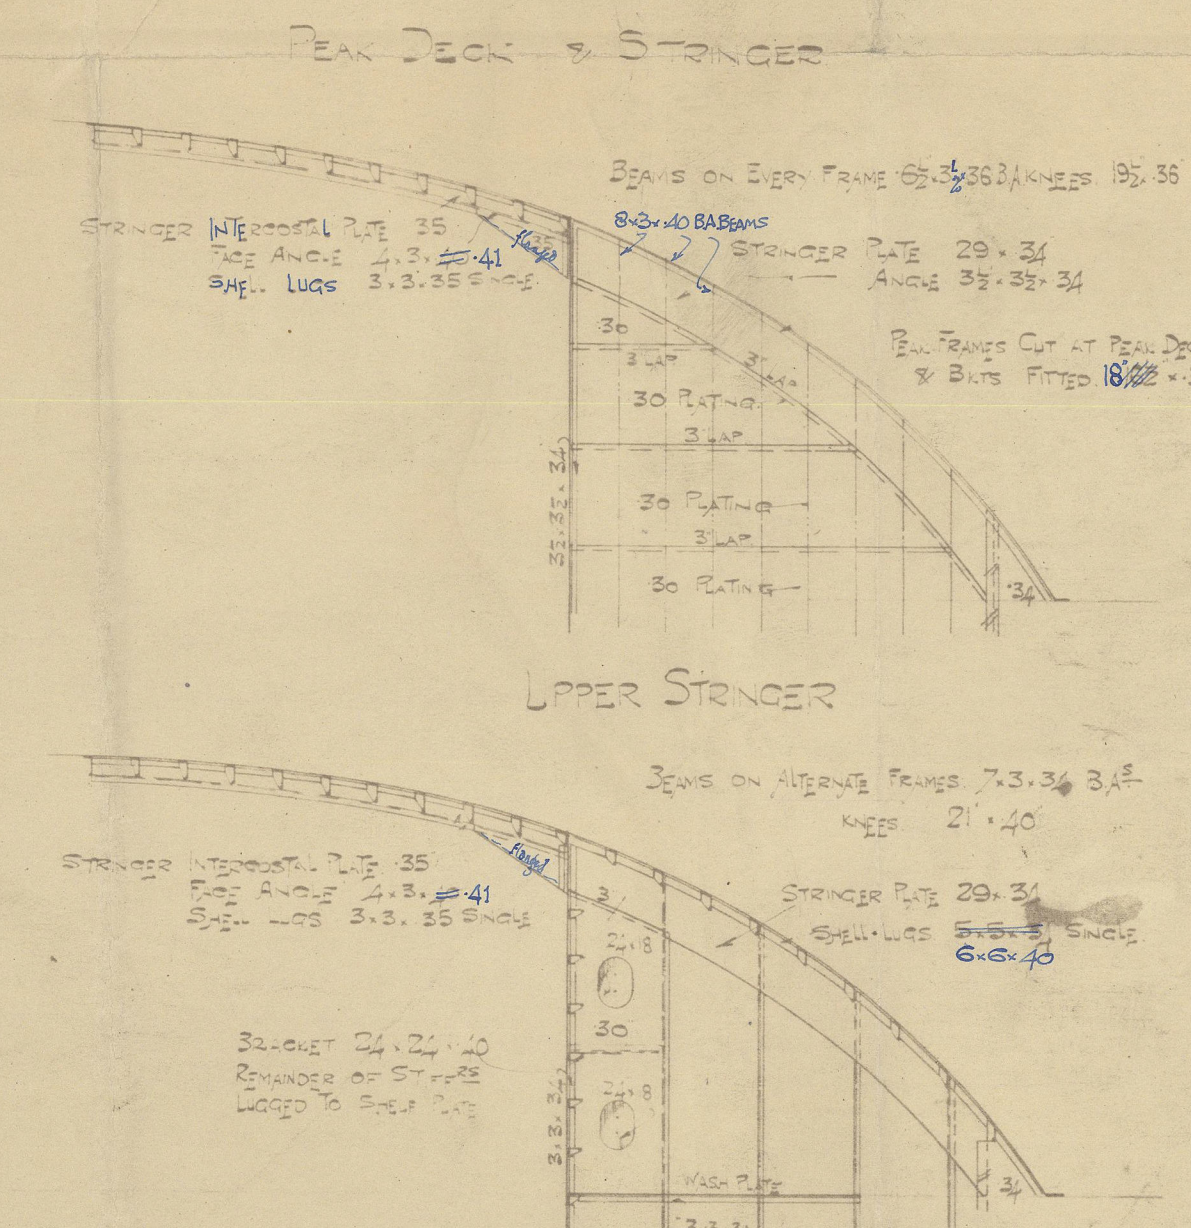 PEAK DECK & STRINGER
BEAMS ON EVERY FRAME 6½×3½×·36 B.A. KNEES. 19½×·36
STRINGER INTERCOSTAL PLATE ·35
FACE ANGLE 4×3× ·41
SHELL LUGS 3×3×·35 SINGLE.
flanged
·35
8×3×·40 B.A. BEAMS
STRINGER PLATE 29×·34
ANGLE 3½×3½×·34
PEAK FRAMES CUT AT PEAK DEC
& BKTS FITTED. 18"
·30
3" LAP
3" LAP
·30 PLATING.
3" LAP
3½×3½×·34
·30 PLATING
3" LAP
·30 PLATING
·34
UPPER STRINGER
BEAMS ON ALTERNATE FRAMES. 7×3×·34 B.A.S
KNEES. 21"×·40
STRINGER INTERCOSTAL PLATE. ·35
FACE ANGLE 4×3× ·41
SHELL LUGS 3×3×·35 SINGLE
flanged
STRINGER PLATE 29×·34
SHELL·LUGS. 5×5×·3 SINGLE.
6×6×·40
·30
BRACKET 24×24×·40
REMAINDER OF STIFFRS
LUGGED TO SHELF PLATE
3×3×·34
WASH PLATE
·34